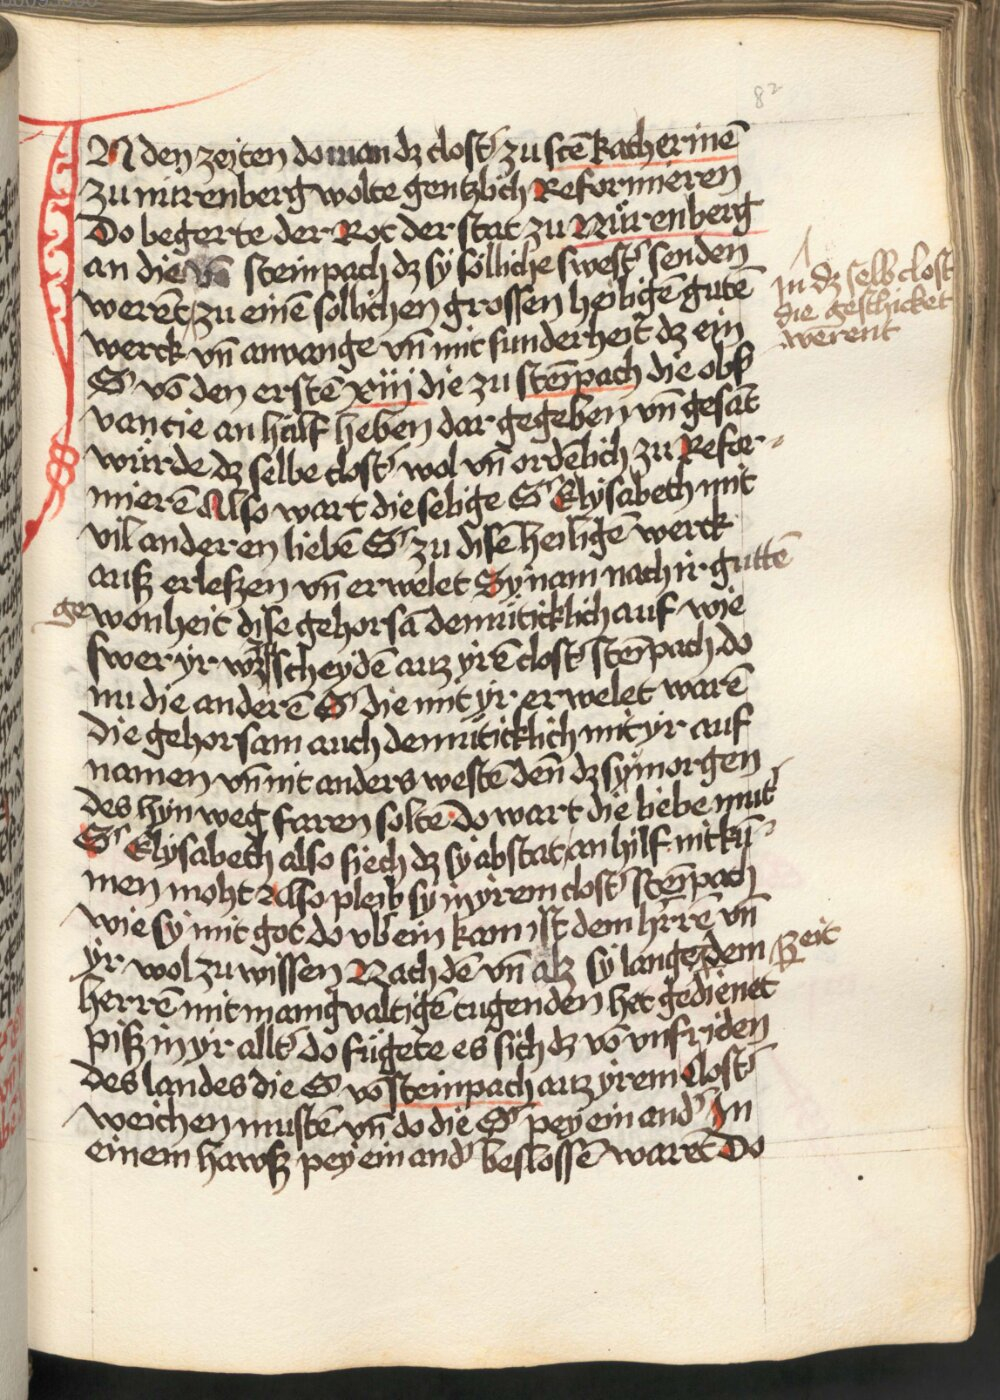 82
IN den zeiten do man dz clost' zu sctē Katherinē
zu nürenberg wolte gentzlich Reformieren
Do begerte der Rot der stat zu Nürenberg
an die vō steinpach dz sy sölliche swest' senden
werēt zu einē sollichen grossen heiligē gutē
in dz selb clost'
die geschicket
werent
werck vn̄ anvange vn̄ mit sunderheit dz ein
S' vō den erstē xiij die zu stēipach die obs
vancie an hůlf heben dar gegeben vn̄ gesāt
würde dz selbe clost' wol vn̄ ordēlich zu Refor-
mierē Also wart die selige S' Elysabeth mit
vil anderen liebē S' zu disē heiligē werck
auß erleßen vn̄ erwelet Sy nam nach ir guttē
gewonheit dise gehorsā demüticklich auf wie
swer yr wz scheydē auz yrē clost' stēipach do
nu die anderē S' die mit yr erwelet warē
die gehorsam auch demüticklich mit yr auf
namen vn̄ nit anders westē den̄ dz sy morgen
des hyn weg faren soltē do wart die liebe mut'
S' Elysabeth also siech dz sy ab stat an hilf nit kū
men moht Also pleib sy in yrem clost' stēipach
wie sy mit got do vb ein kam ist dem hrrē vn̄
yr wol zu wissen Nach dē vn̄ alz sy lange zeit dem
herrē mit manigvaltigē tugenden het gedienet
piß in yr allt' do fügete es sich dz vō vnfriden
des landes die S' vō steinpach auz yrem Clost'
weichen mustē vn̄ do die S' pey ein and' In
einem hawß pey ein and' beslossē warēt Do